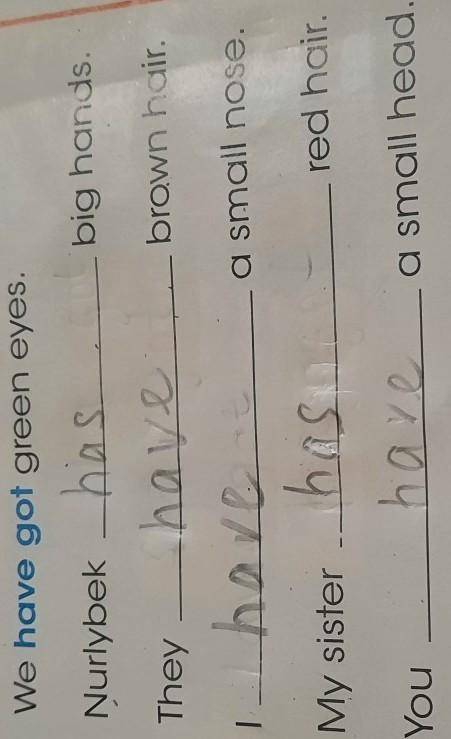 We have got green eyes.
Nurlybek has big hands.
They have brown hair.
I have a small nose.
My sister has red hair.
You have a small head.